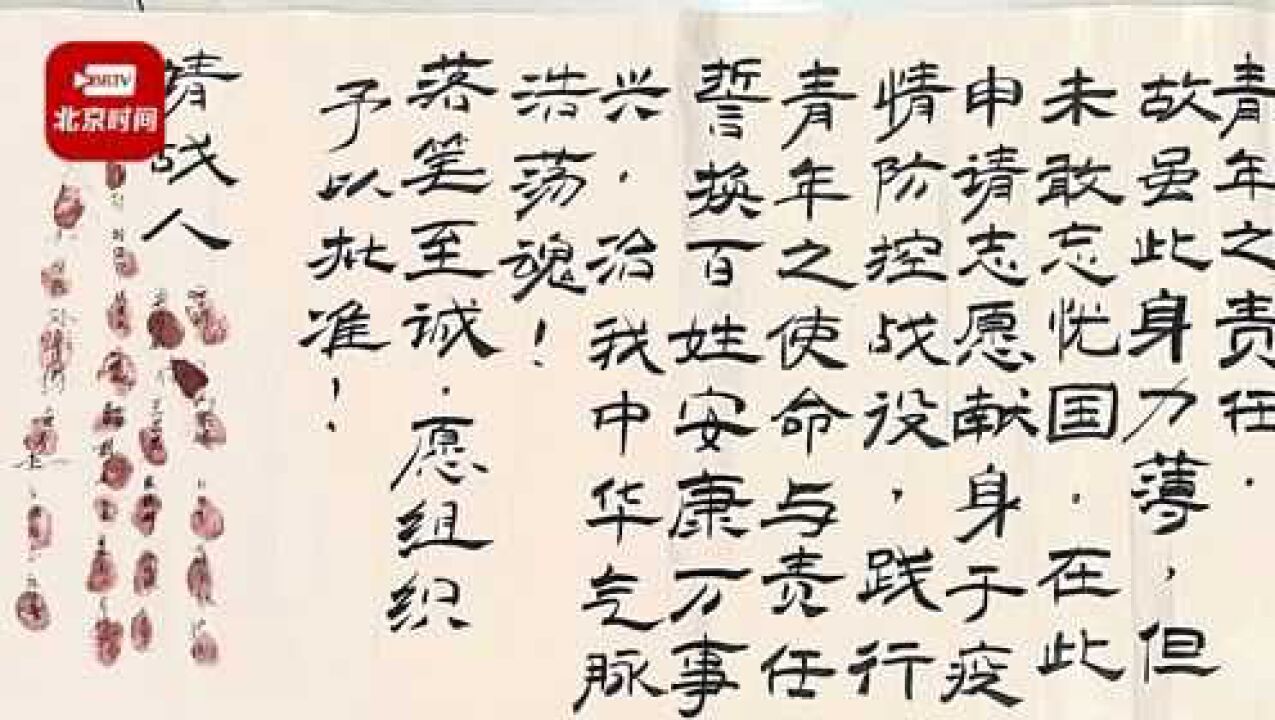 青年之责任.
故虽此身力薄，但
未敢忘忧国.在此
申请志愿献身于疫
情防控战役，践行
青年之使命与责任
誓换百姓安康万事
兴.治我中华气脉
浩荡魂！
落笔至诚.愿组织
予以批准！
请战人
BRTV
北京时间